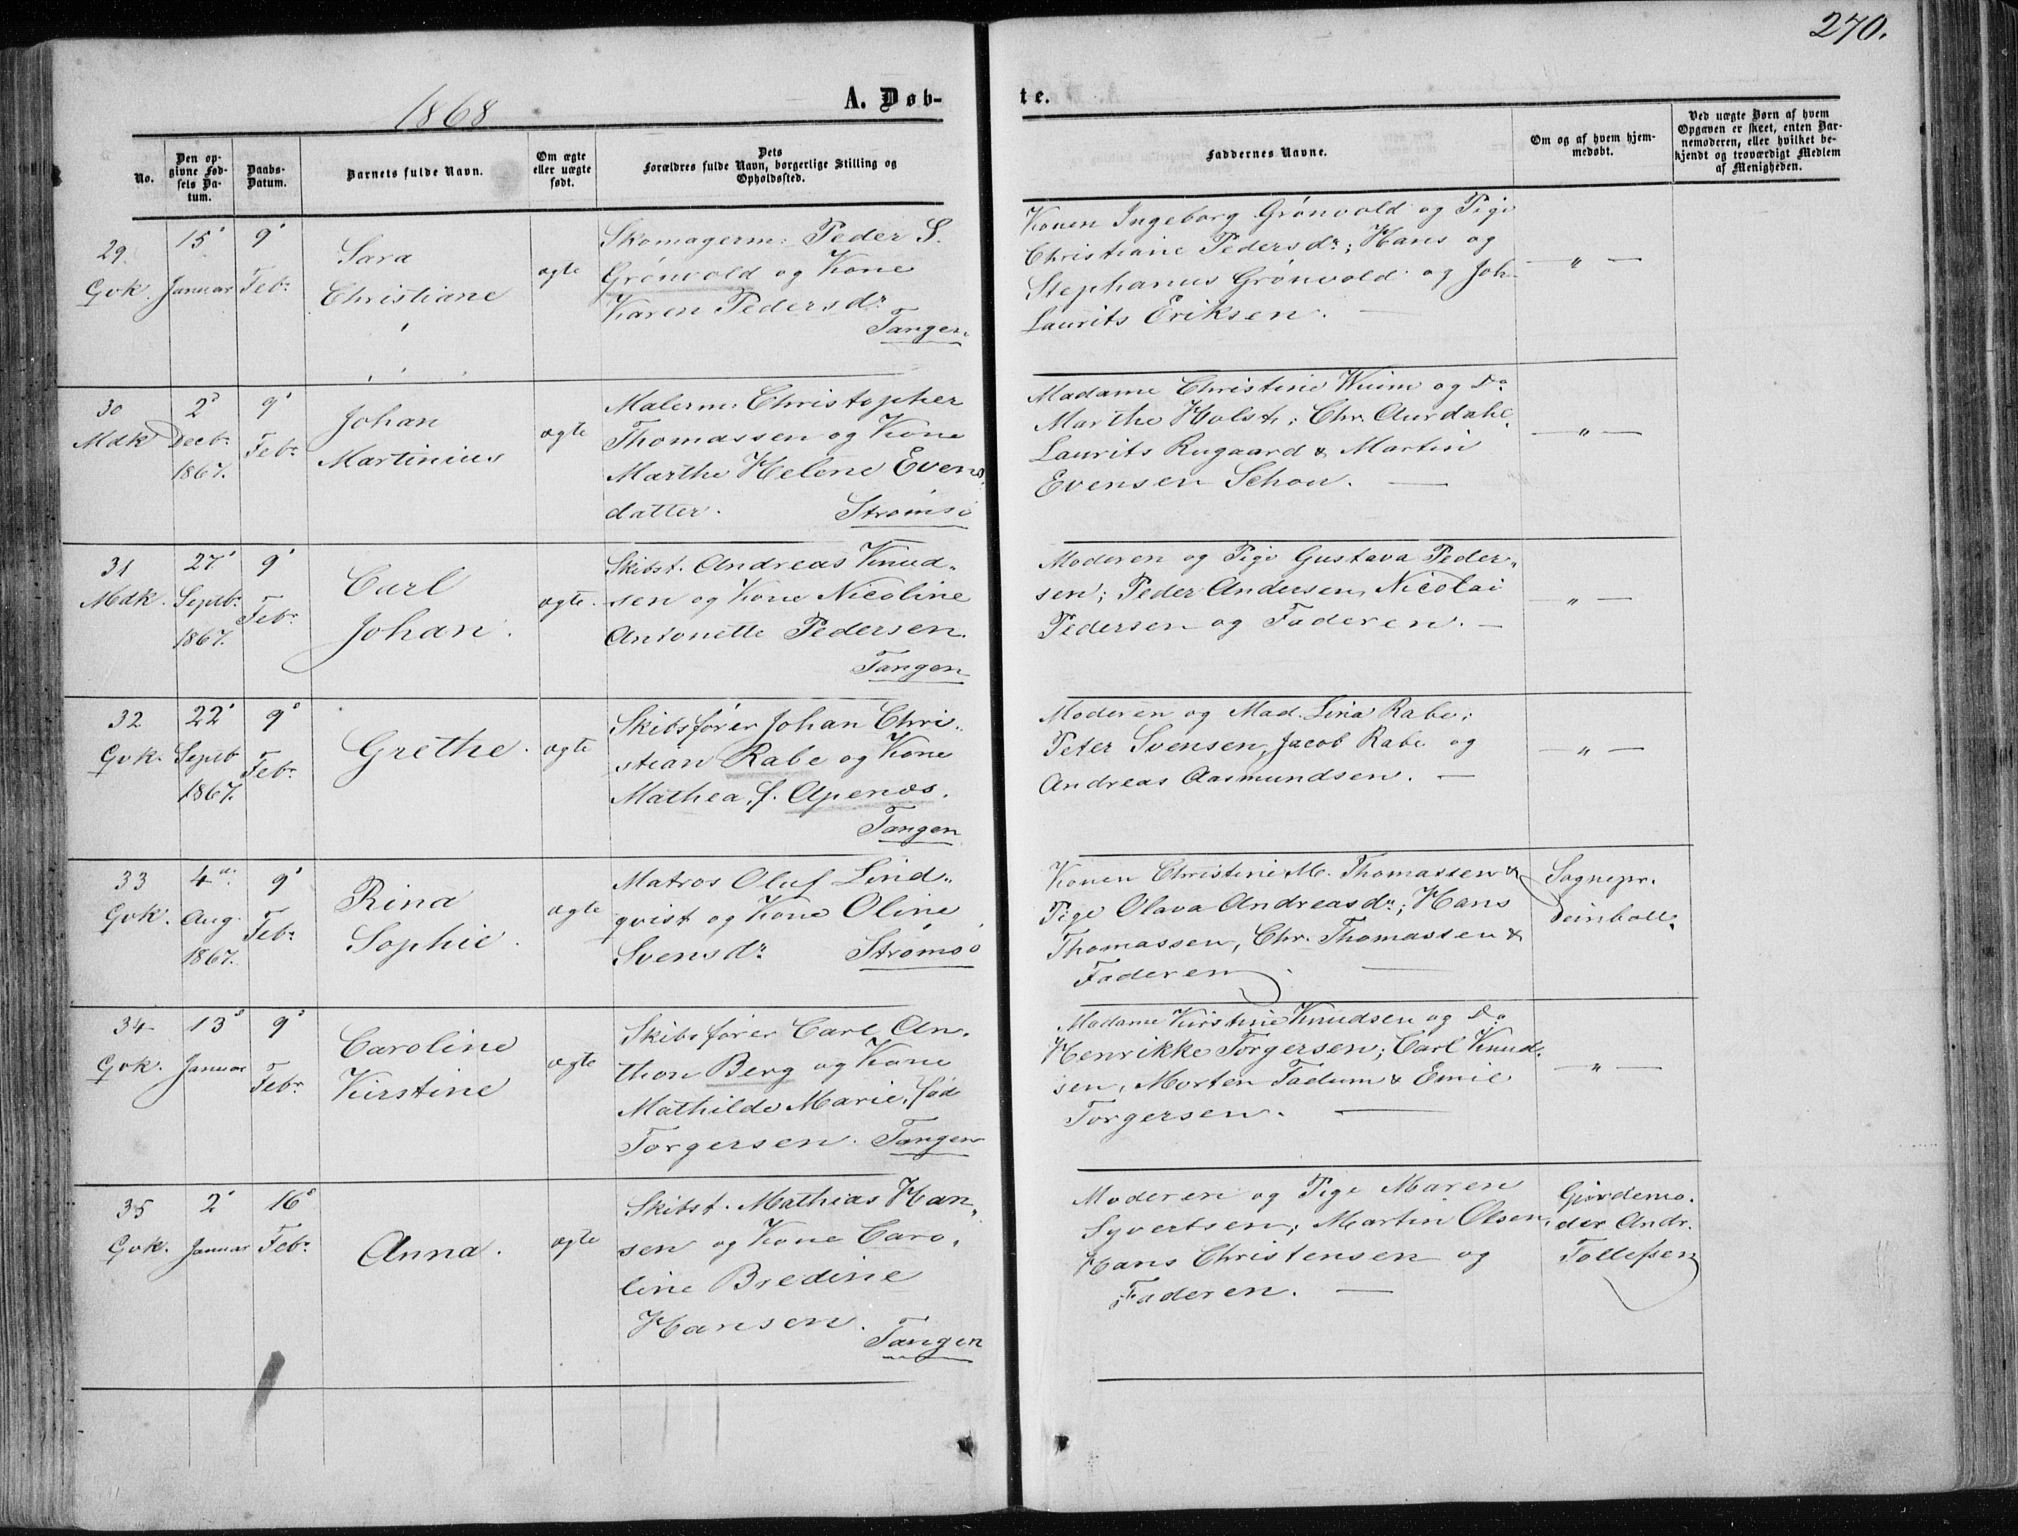 270.
1868
A. Døb-
te.
No.
Den op-
givne Fød-
sels Da-
tum.
Daabs-
Datum.
Barnets fulde Navn.
Om ægte
eller uægte
født.
Dets
Forældres fulde Navn, borgerlige Stilling og
Opholdssted.
Faddernes Navne.
Om og af hvem hjem-
medøbt.
Ved uægte Børn af hvem
Opgaven er skeet, enten Bar-
nemoderen, eller hvilket be-
kjendt og troværdigt Medlem
af Menigheden.
29.
Qvk.
15'
Januar
9'
Febr
Sara
Christiane
ægte
Skomagerm: Peder S.
Grönvold og Kone
Karen Pedersdr
Tangen
Konen Ingeborg Grönvold og Pige
Christiane Pedersdr; Hans og
Stephanus Grönvold og Joh.
Laurits Eriksen. —
— " —
30
Mdk
2'
Decbr
1867.
9'
Febr
Johan
Martinius
ægte
Malerm: Christopher
Thomassen og Kone
Marthe Helene Evens
datter.
Strömsö
Madame Christine Wiim og Do
Marthe Holst; Chr. Aurdahl,
Laurits Rugaard & Martin
Evensen Schou. —
— " —
31
Mdk.
27'
Septbr
1867.
9'
Febr
Carl
Johan.
ægte.
Skibst. Andreas Knud-
sen og Kone Nicoline
Antonette Pedersen.
Tangen
Moderen og Pige Gustava Peder-
sen; Peder Andersen, Nicolai
Pedersen og Faderen. —
— " —
32
Qvk.
22'
Septb
1867.
9'
Febr
Grethe.
ægte
Skibsfører Johan Chri-
stian Rabe og Kone
Mathea, f. Apenæs.
Tangen
Moderen og Mad. Lina Rabe;
Peter Svensen, Jacob Rabe og
Andreas Aasmundsen. —
— " —
33
Qvk.
4de
Aug.
1867.
9'
Febr
Rina
Sophie.
ægte
Matros Oluf Lind-
qvist og Kone Oline
Svensdr
Strömsö
Konen Christine M. Thomassen &
Pige Olava Andreasdr; Hans
Thomassen, Chr. Thomassen &
Faderen. —
Sognepr.
Deinboll.
34
Qvk.
13'
Januar
9'
Febr
Caroline
Kirstine
ægte
Skibsfører Carl An-
thon Berg og Kone
Mathilde Marie, fød
Torgersen. Tangen
Madame Kirstine Knudsen og Do
Henrikke Torgersen; Carl Knud-
sen, Morten Fadum & Emil
Torgersen. —
— " —
35
Qvk.
2'
Januar
16'
Febr
Anna.
ægte
Skibst. Mathias Han-
sen og Kone Caro-
line Bredine
Hansen.
Tangen
Moderen og Pige Maren
Syvertsen; Martin Olsen,
Hans Christensen og
Faderen. —
Gjordemo-
der Andr.
Tollefsen